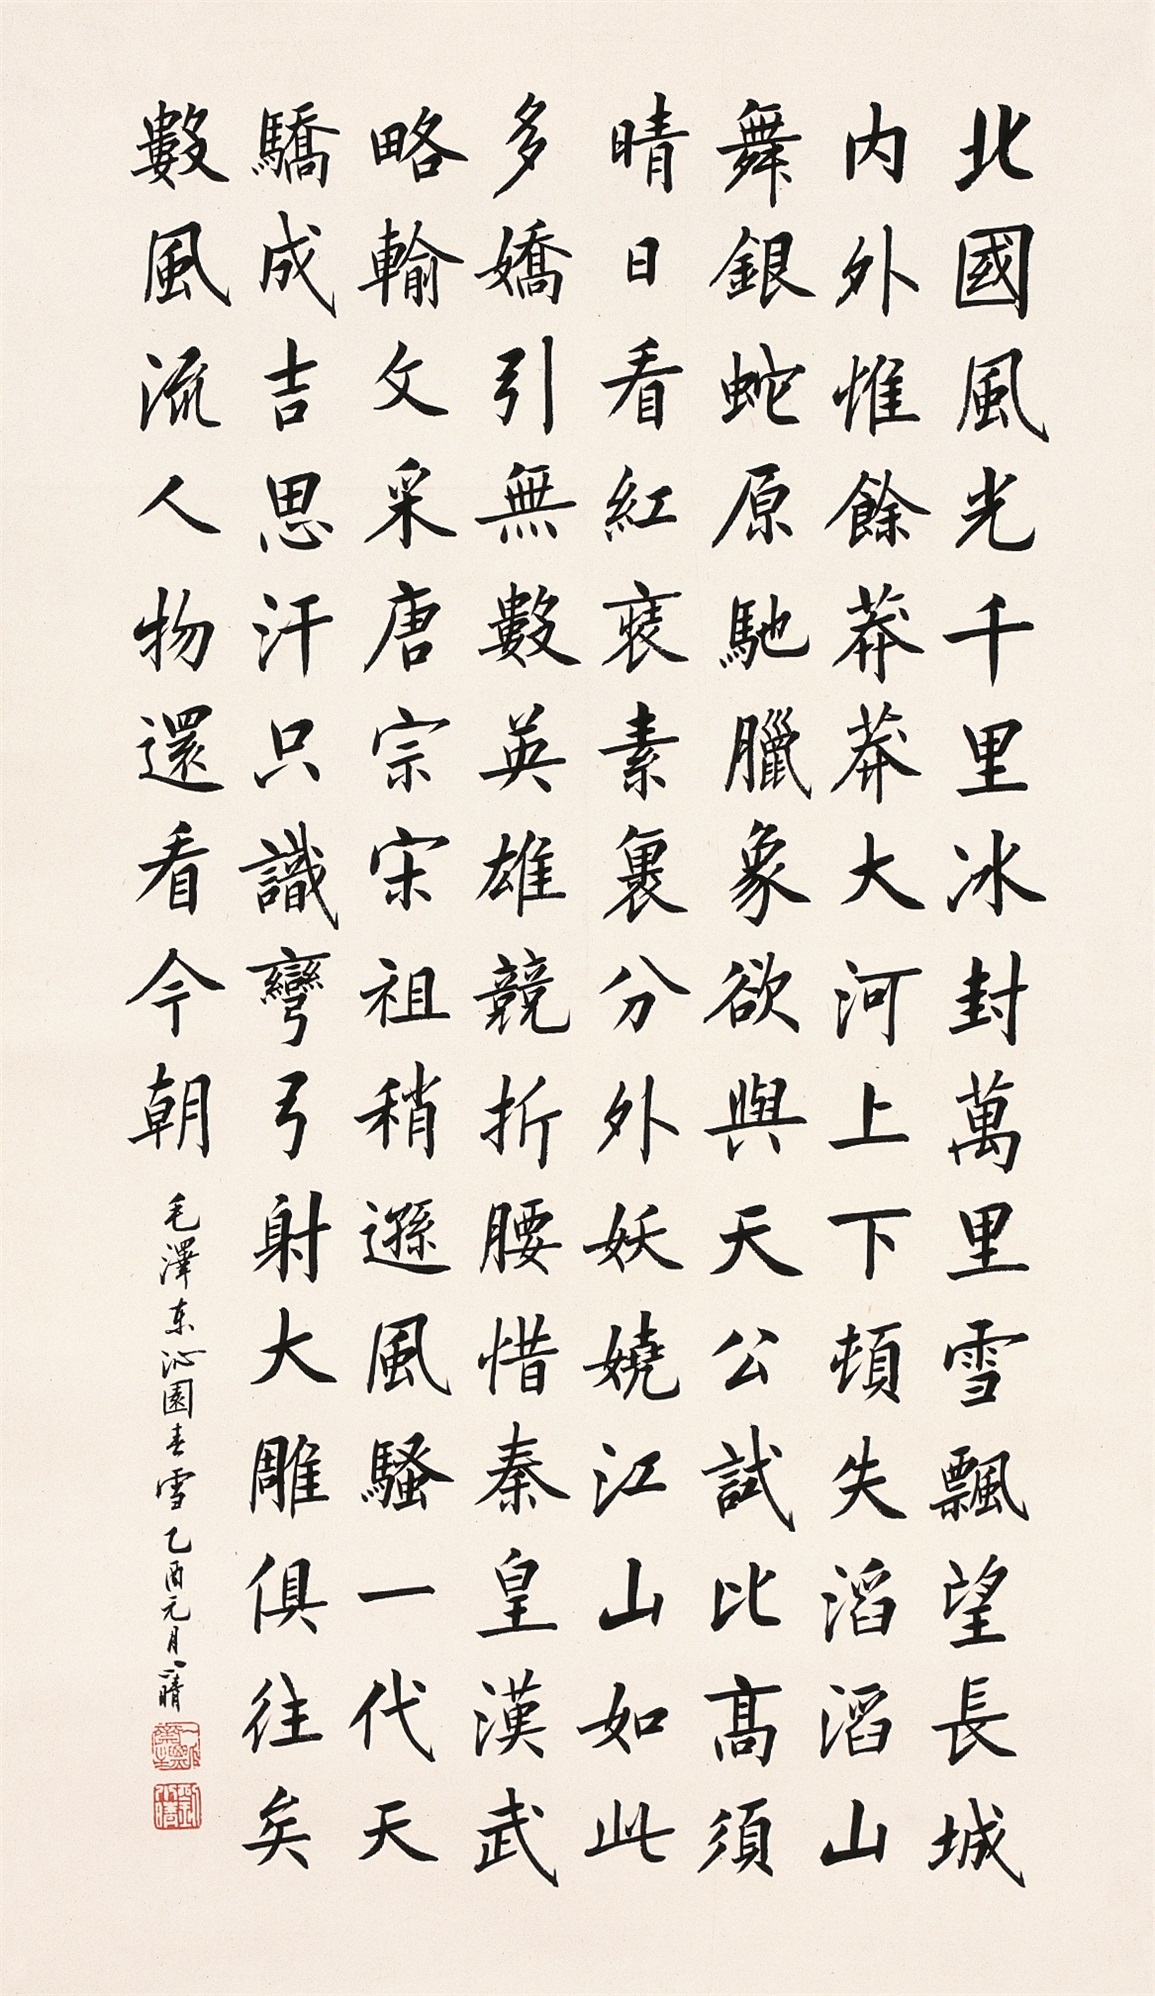 北國風光千里冰封萬里雪飄望長城
内外惟餘莽莽大河上下頓失滔滔山
舞銀蛇原馳臘象欲與天公試比髙須
晴日看紅裝素裹分外妖嬈江山如此
多嬌引無數英雄競折腰惜秦皇漢武
略輸文采唐宗宋祖稍遜風騷一代天
驕成吉思汗只識彎弓射大雕俱往矣
數風流人物還看今朝
毛澤东沁園春雪乙酉元月小晴
劉小晴